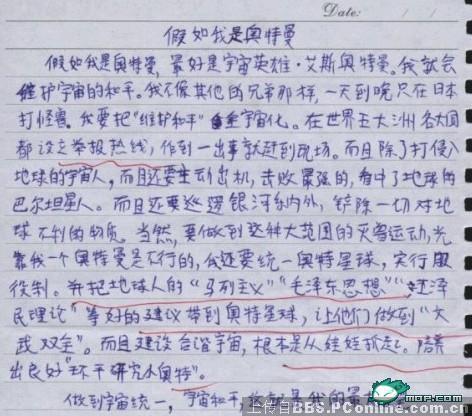 Date: / /
假如我是奥特曼
假如我是奥特曼，最好是宇宙英雄·艾斯奥特曼。我就会
维护宇宙的和平。我不像其他的兄弟那样，一天到晚只在日本
打怪兽。我要把“维护和平”全宇宙化。在世界五大洲各大国
都设立举报热线，作到一出事就赶到现场。而且除了打侵入
地球的宇宙人，而且还要主动出机，击败最强的，看中了地球的
巴尔坦星人。而且还要巡逻银河系内外，铲除一切对地
球不利的物质。当然，要做到这种大范围的灭害运动，光
靠我一个奥特曼是不行的，我还要统一奥特星球，实行服
役制。并把地球人的“马列主义”“毛泽东思想”“江泽
民理论”等好的建议带到奥特星球，让他们做到“文
武双全”。而且建设合谐宇宙，根本是从娃娃抓起。培养
出良好“环平研究小奥特”。
做到宇宙统一，宇宙和平，这就是我的最
上传自BBS.PConline.com.cn
MOP.com